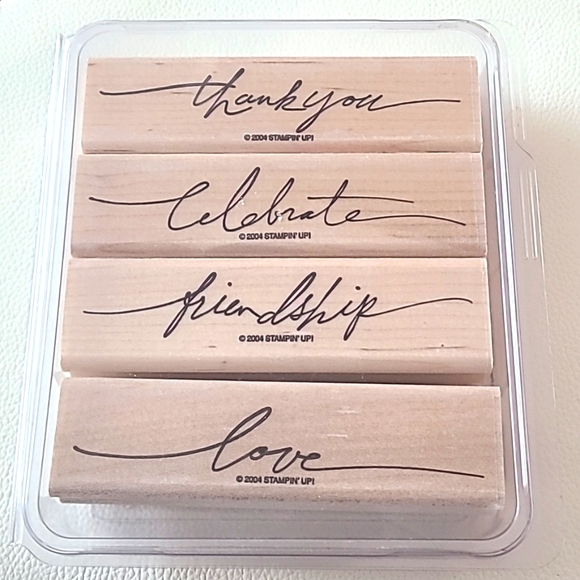 thank you
© 2004 STAMPIN' UP!
Celebrate
© 2004 STAMPIN' UP!
friendship
© 2004 STAMPIN' UP!
love
© 2004 STAMPIN' UP!